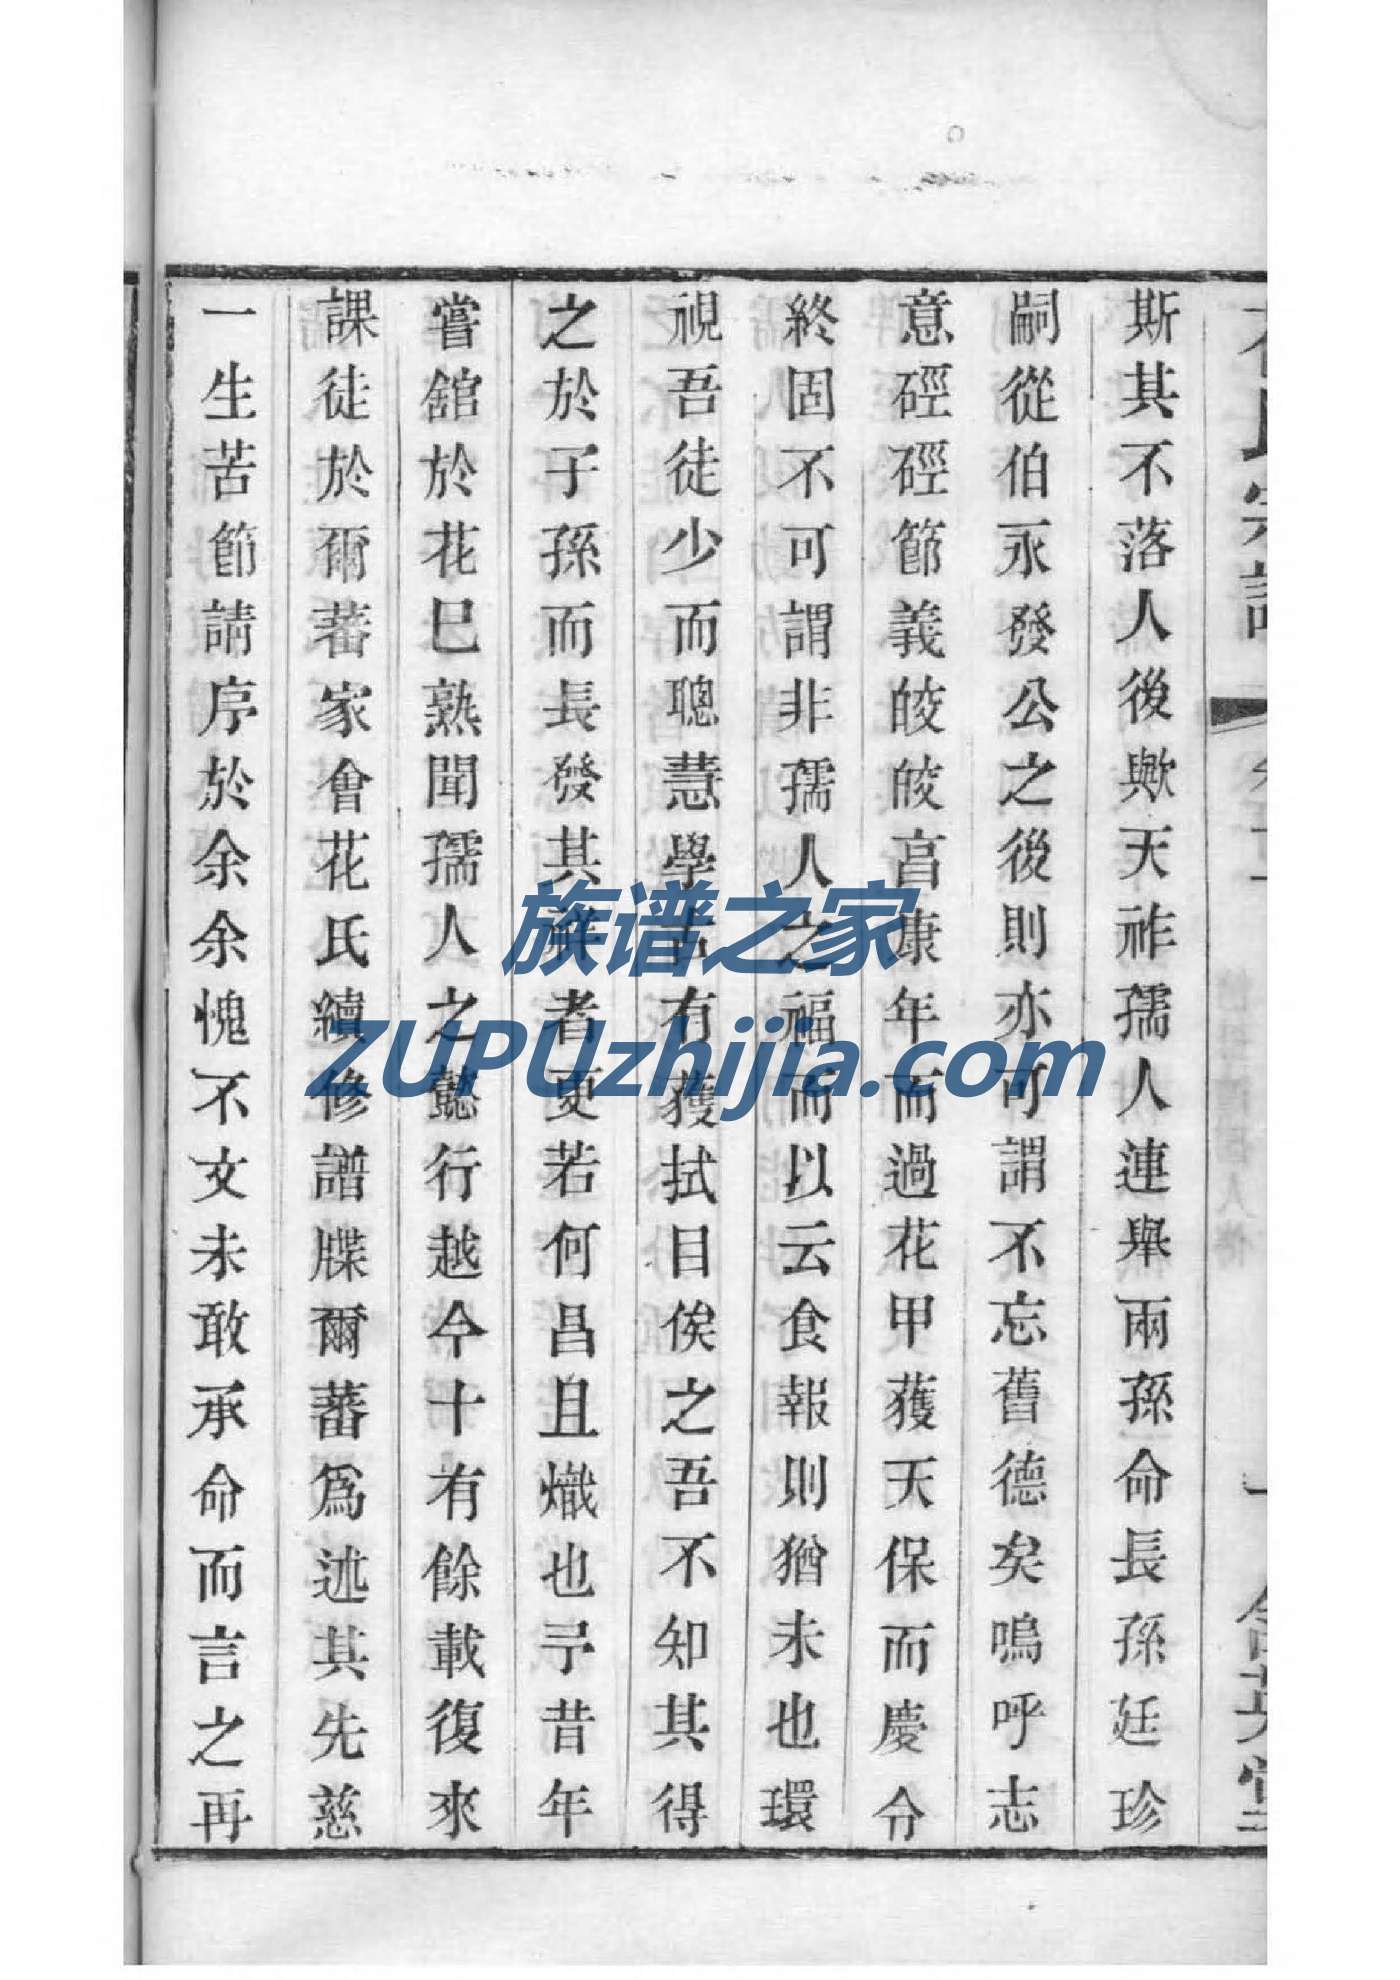 斯其不落人後歟天祚孺人連舉兩孫命長孫廷珍
嗣從伯永發公之後則亦可謂不忘舊德矣嗚呼志
意硜硜節義皎皎亯康年而過花甲獲天保而慶分
終固不可謂非孺人之福而以云食報則猶未也環
視吾徒少而聰慧學古有獲拭目俟之吾不知其得
之於子孫而長發其祥者更若何昌且熾也予昔年
嘗舘於花巳熟聞孺人之懿行越今十有餘載復來
課徒於爾蕃家會花氏續修譜牒爾蕃爲述其先慈
一生苦節請序於余余愧不文未敢承命而言之再
族谱之家
ZUPUzhijia.com